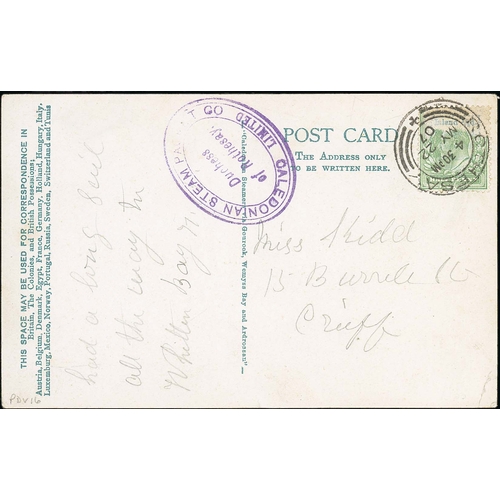 THIS SPACE MAY BE USED FOR CORRESPONDENCE IN
Britain, The Colonies, and British Possessions;
Austria, Belgium, Denmark, Egypt, France, Germany, Holland, Hungary, Italy,
Luxemburg, Mexico, Norway, Portugal, Russia, Sweden, Switzerland and Tunis
had a long
all the way
Whitten Bay
CALEDONIAN STEAM PACKET CO
LIMITED
Duchess
of Rothesay.
"Caledonia Steamers"—Gourock, Wemyss Bay and Ardrossan
POST CARD
THE ADDRESS ONLY
TO BE WRITTEN HERE.
Miss Kidd
15 Burrell St
Crieff
ROTHESAY
4 30 PM